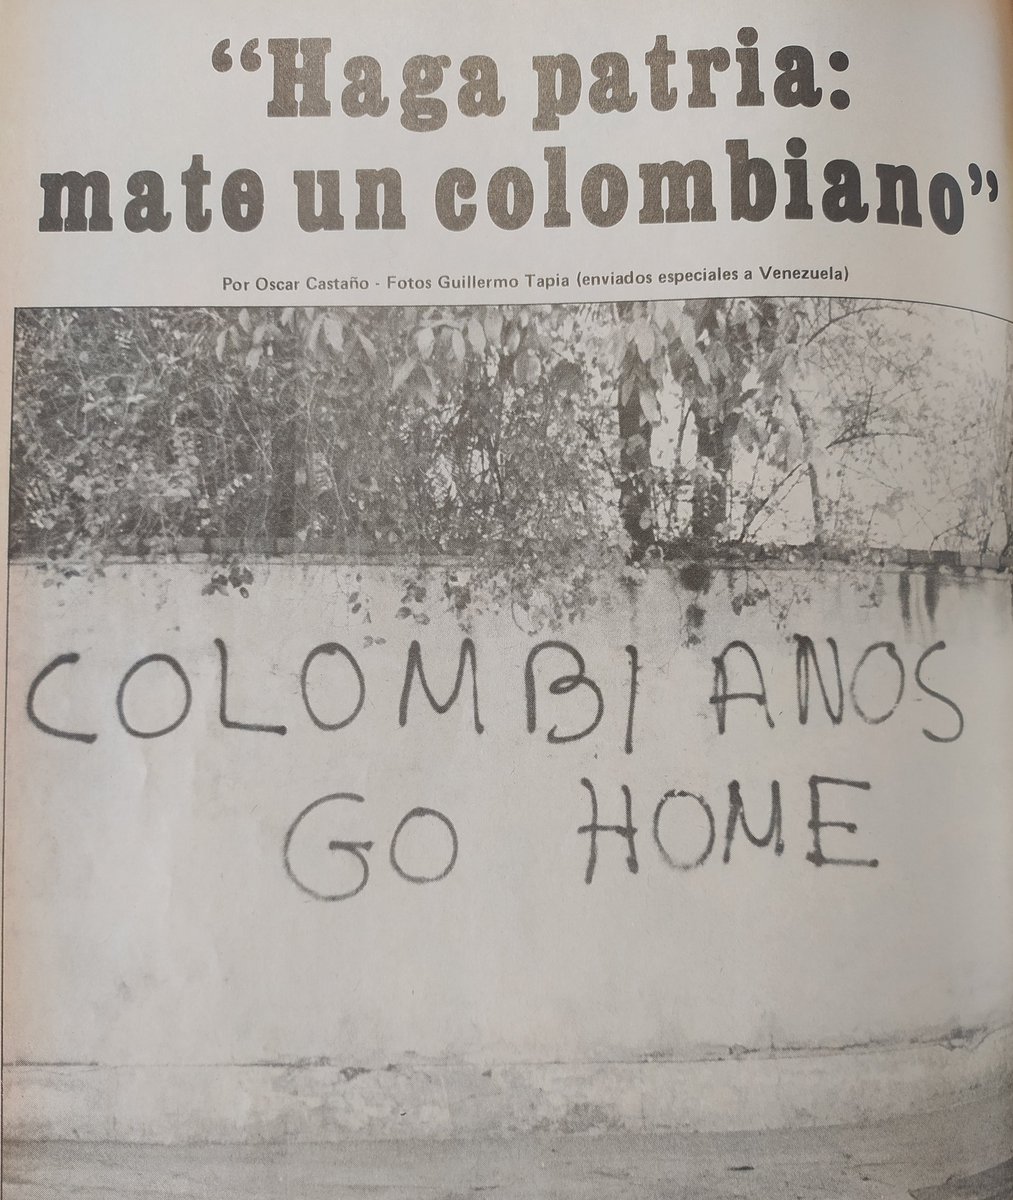 “Haga patria:
mate un colombiano”
Por Oscar Castaño - Fotos Guillermo Tapia (enviados especiales a Venezuela)
COLOMBIANOS
GO HOME